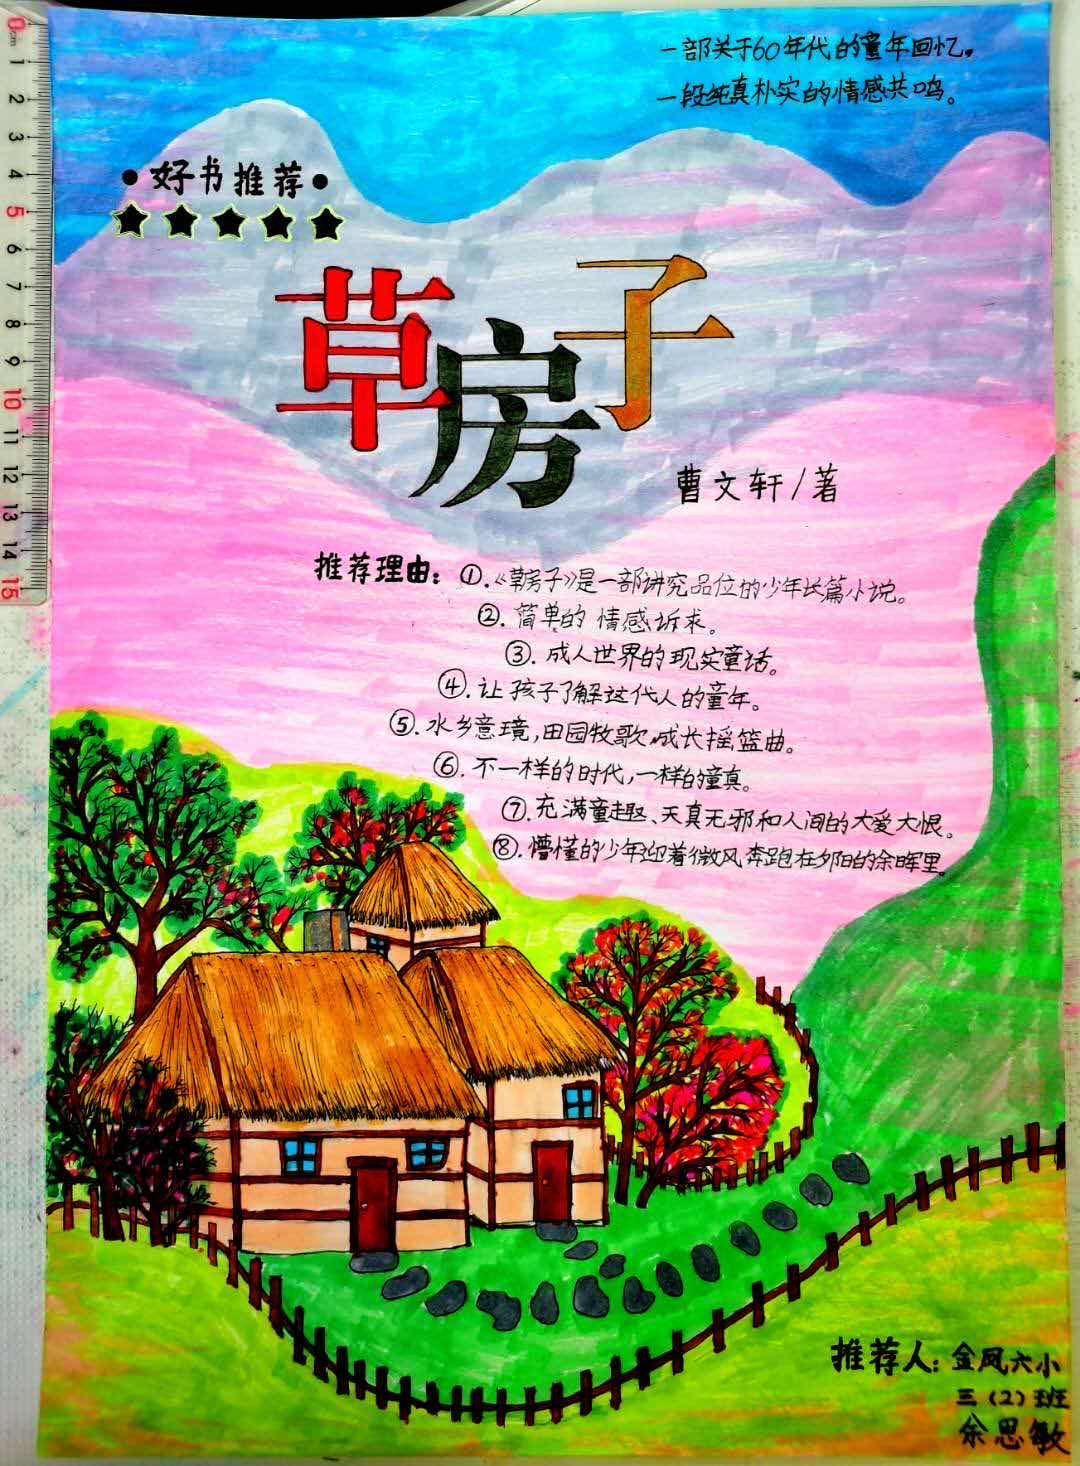 一部关于60年代的童年回忆。
一段纯真朴实的情感共鸣。
•好书推荐•
草房子
曹文轩/著
推荐理由:①.《草房子》是一部讲究品位的少年长篇小说。
②.简单的情感诉求。
③.成人世界的现实童话。
④.让孩子了解这代人的童年。
⑤.水乡意境,田园牧歌,成长摇篮曲。
⑥.不一样的时代,一样的童真。
⑦.充满童趣、天真无邪和人间的大爱大恨。
⑧.懵懂的少年迎着微风奔跑在夕阳的余晖里。
推荐人:金凤六小
三(2)班
余思敏
0
cm
1
2
3
4
5
6
7
8
9
10
11
12
13
14
15